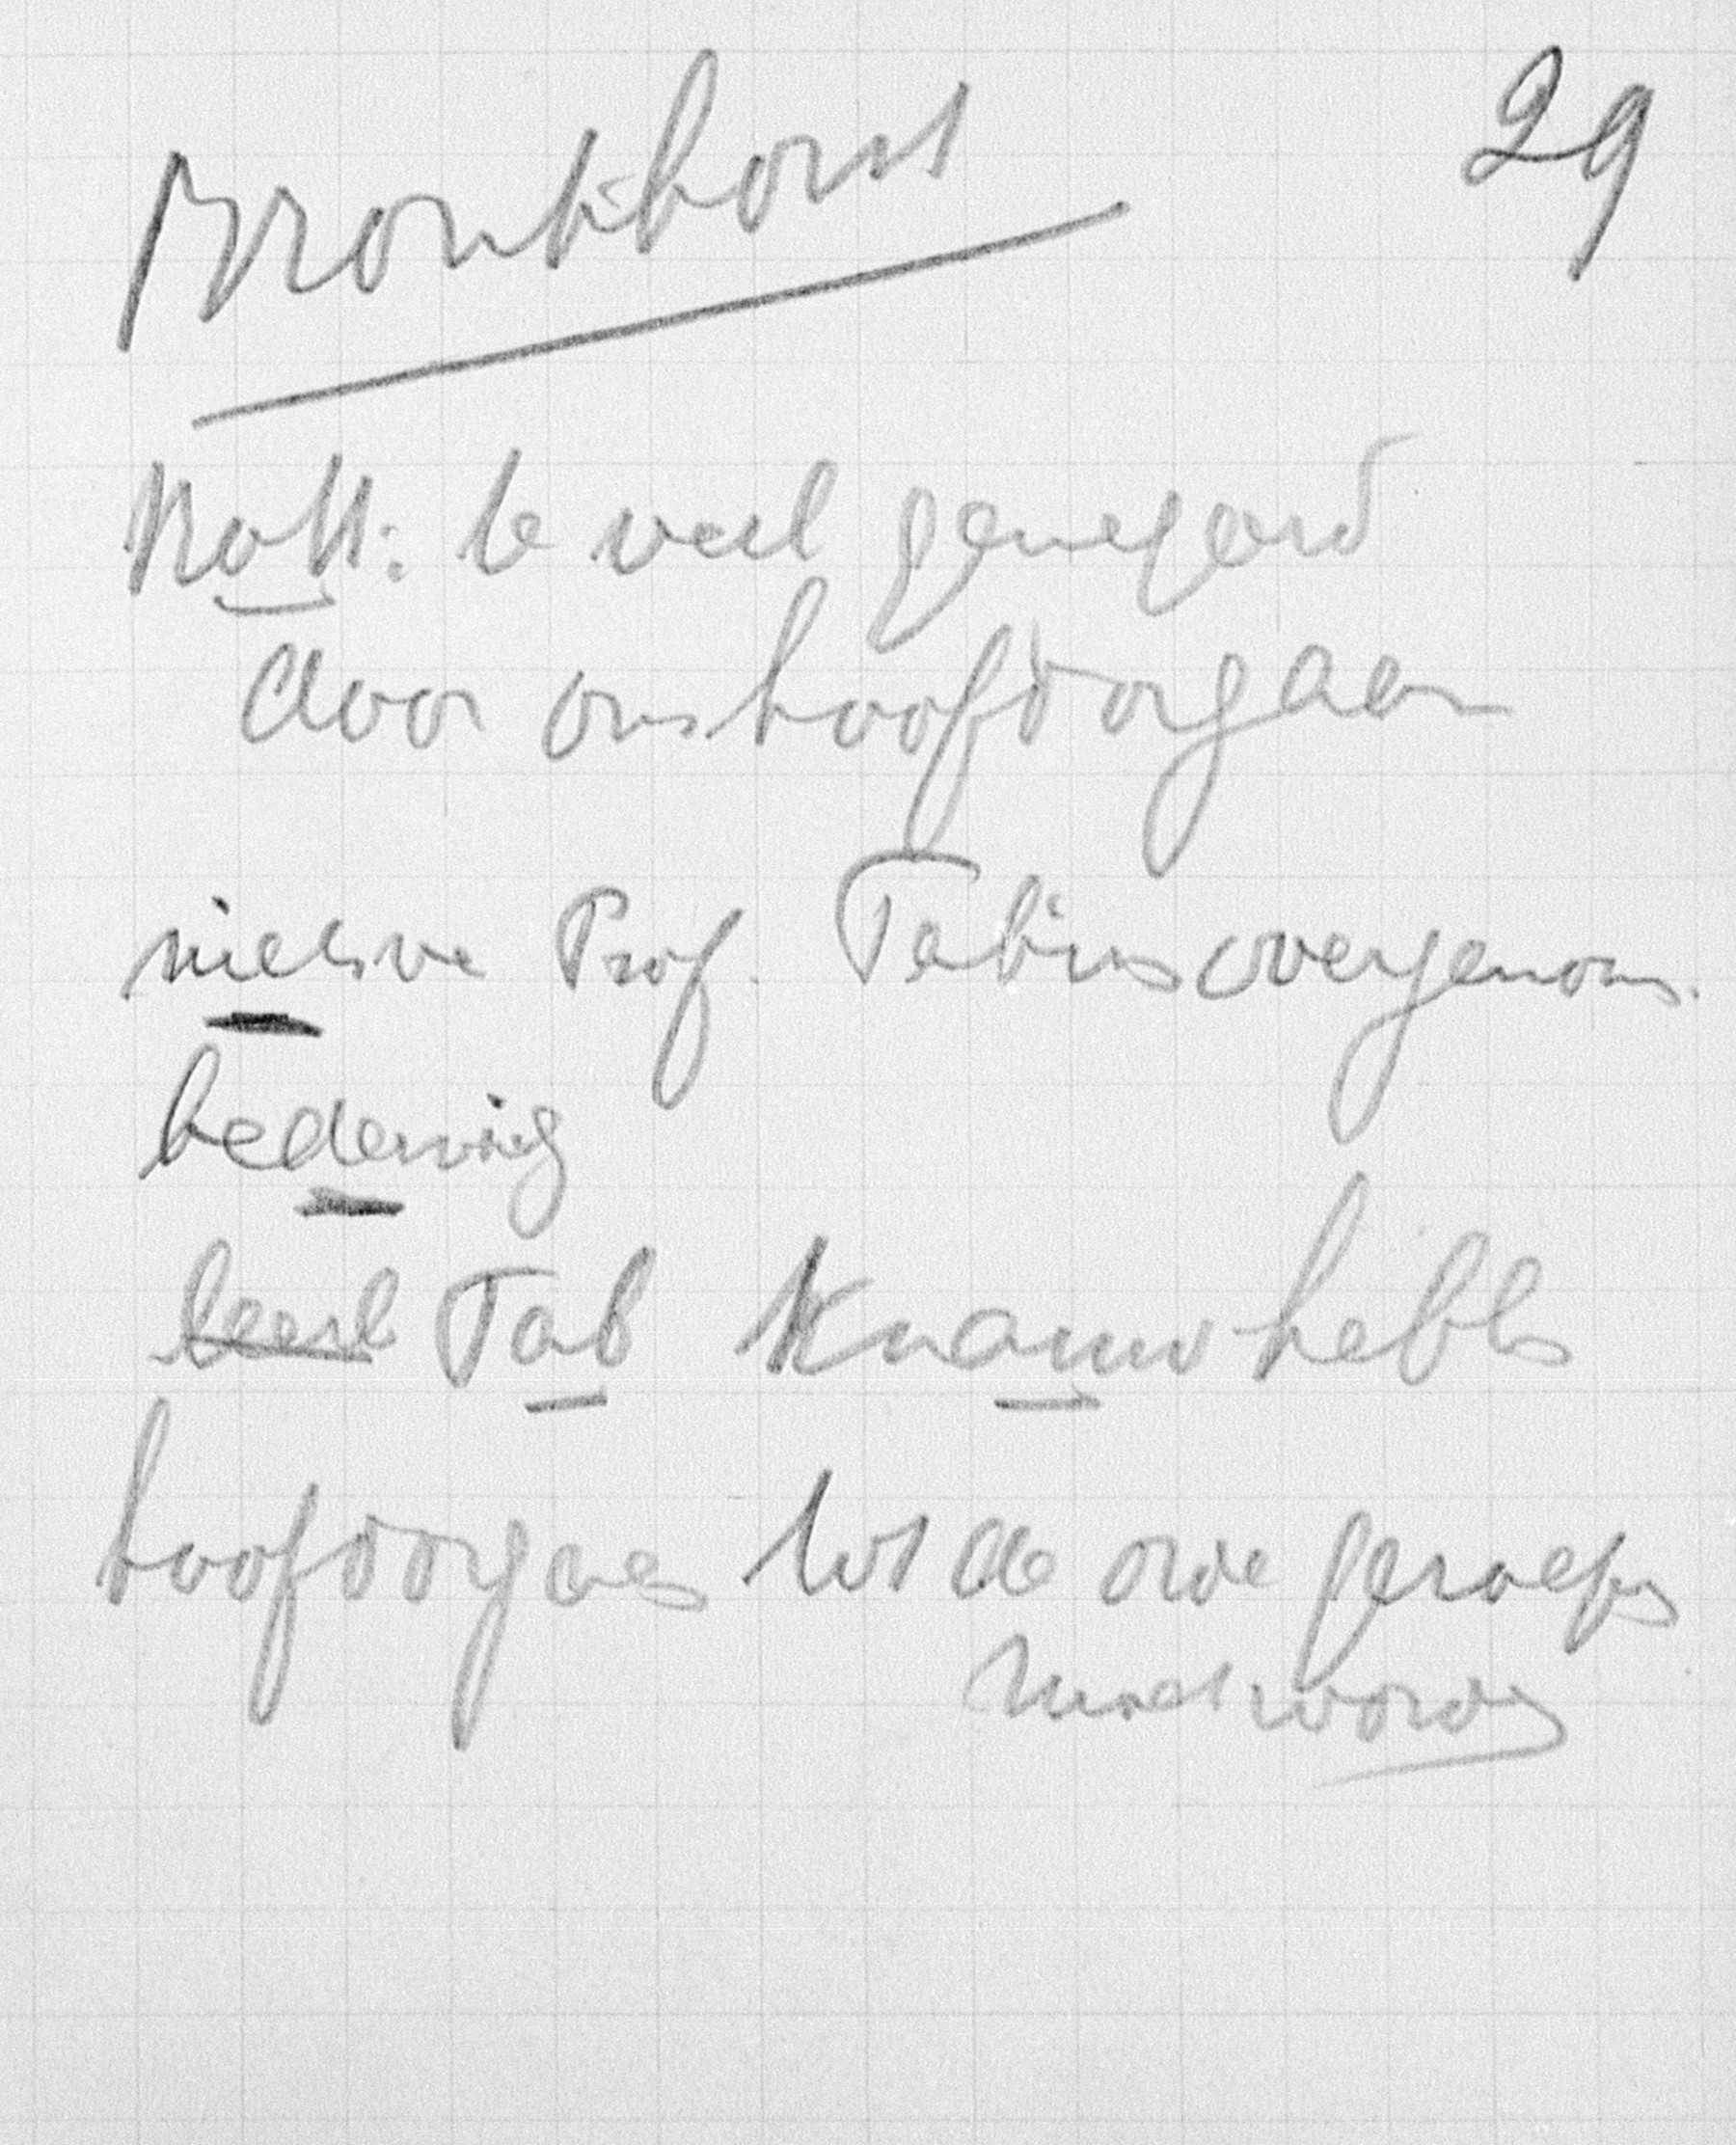 Bronkhorst 29
Rott: te veel genegeerd
door ons hoofdorgaan
nieuwe Prof. Tabius overgenom.
bederving
leest Tab Knauw hebb
hoofdorgaan tot de orde geroepen
moet worden